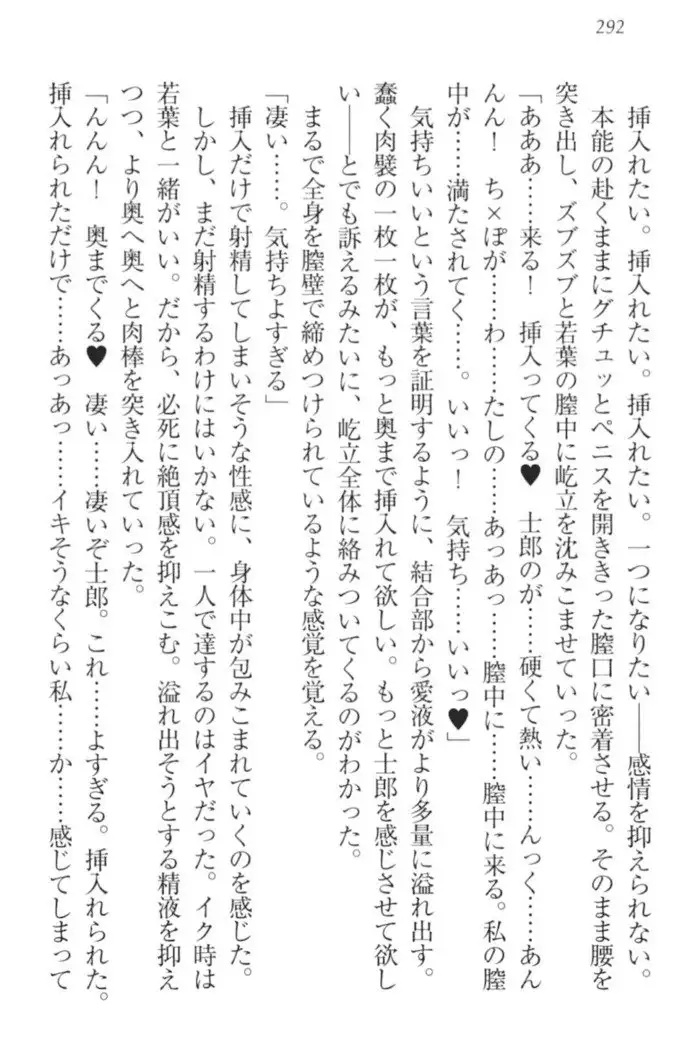 292
挿入れたい。挿入れたい。挿入れたい。一つになりたい――感情を抑えられない。
本能の赴くままにグチュッとペニスを開ききった膣口に密着させる。そのまま腰を
突き出し、ズブズブと若葉の膣中に屹立を沈みこませていった。
「あああ……来る！　挿入ってくる♥　士郎のが……硬くて熱い……んっく……あん
んん！　ち×ぽが……わ……たしの……あっあっ……膣中に……膣中に来る。私の膣
中が……満たされてく……。いいっ！　気持ち……いいっ♥」
気持ちいいという言葉を証明するように、結合部から愛液がより多量に溢れ出す。
蠢く肉襞の一枚一枚が、もっと奥まで挿入れて欲しい。もっと士郎を感じさせて欲し
い――とでも訴えるみたいに、屹立全体に絡みついてくるのがわかった。
まるで全身を膣壁で締めつけられているような感覚を覚える。
「凄い……。気持ちよすぎる」
挿入だけで射精してしまいそうな性感に、身体中が包みこまれていくのを感じた。
しかし、まだ射精するわけにはいかない。一人で達するのはイヤだった。イク時は
若葉と一緒がいい。だから、必死に絶頂感を抑えこむ。溢れ出そうとする精液を抑え
つつ、より奥へ奥へと肉棒を突き入れていった。
「んんん！　奥までくる♥　凄い……凄いぞ士郎。これ……よすぎる。挿入れられた。
挿入れられただけで……あっあっ……イキそうなくらい私……か……感じてしまって